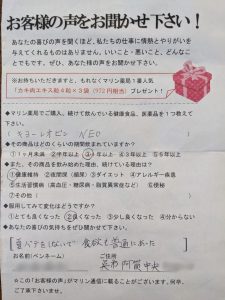 お客様の声をお聞かせ下さい！
あなたの喜びの声を聞くほど、私たちの仕事に情熱とやりがいを
与えてくれるものはありません。いいこと・悪いこと、どんなこ
とでもです。ぜひ、あなたの声をお聞かせ下さい。
※お持ちいただきますと、もれなくマリン薬局１番人気
「カキ肉エキス粒４粒×３袋（972円相当）プレゼント！
◆マリン薬局でご購入、続けて飲んでいる健康食品、医薬品を１つ教えて
下さい。
NEO
◆その商品はどのくらいの期間飲まれていますか？
①１ヶ月未満 ②半年以上 ③１年以上 ④３年以上 ⑤５年以上
◆また、その商品を飲み始めた理由、続けている理由は？
①健康維持 ②夜間頻尿（頻尿） ③ダイエット ④アレルギー疾患
⑤生活習慣病（高血圧・糖尿病・脂質異常症など） ⑥便秘
⑦その他（ ）
◆服用してみて変化はどうですか？
①とても良くなった ②良くなった ③少し良くなった ④分からない
◆あなたの喜びの気持ちをお聞かせ下さい。
夏バテをしないで 食欲も普通にあった
お名前（ペンネーム） ご住所
※この「お客様の声」がマリン通信に載ることがございます。何卒、
ご了承下さいませ。